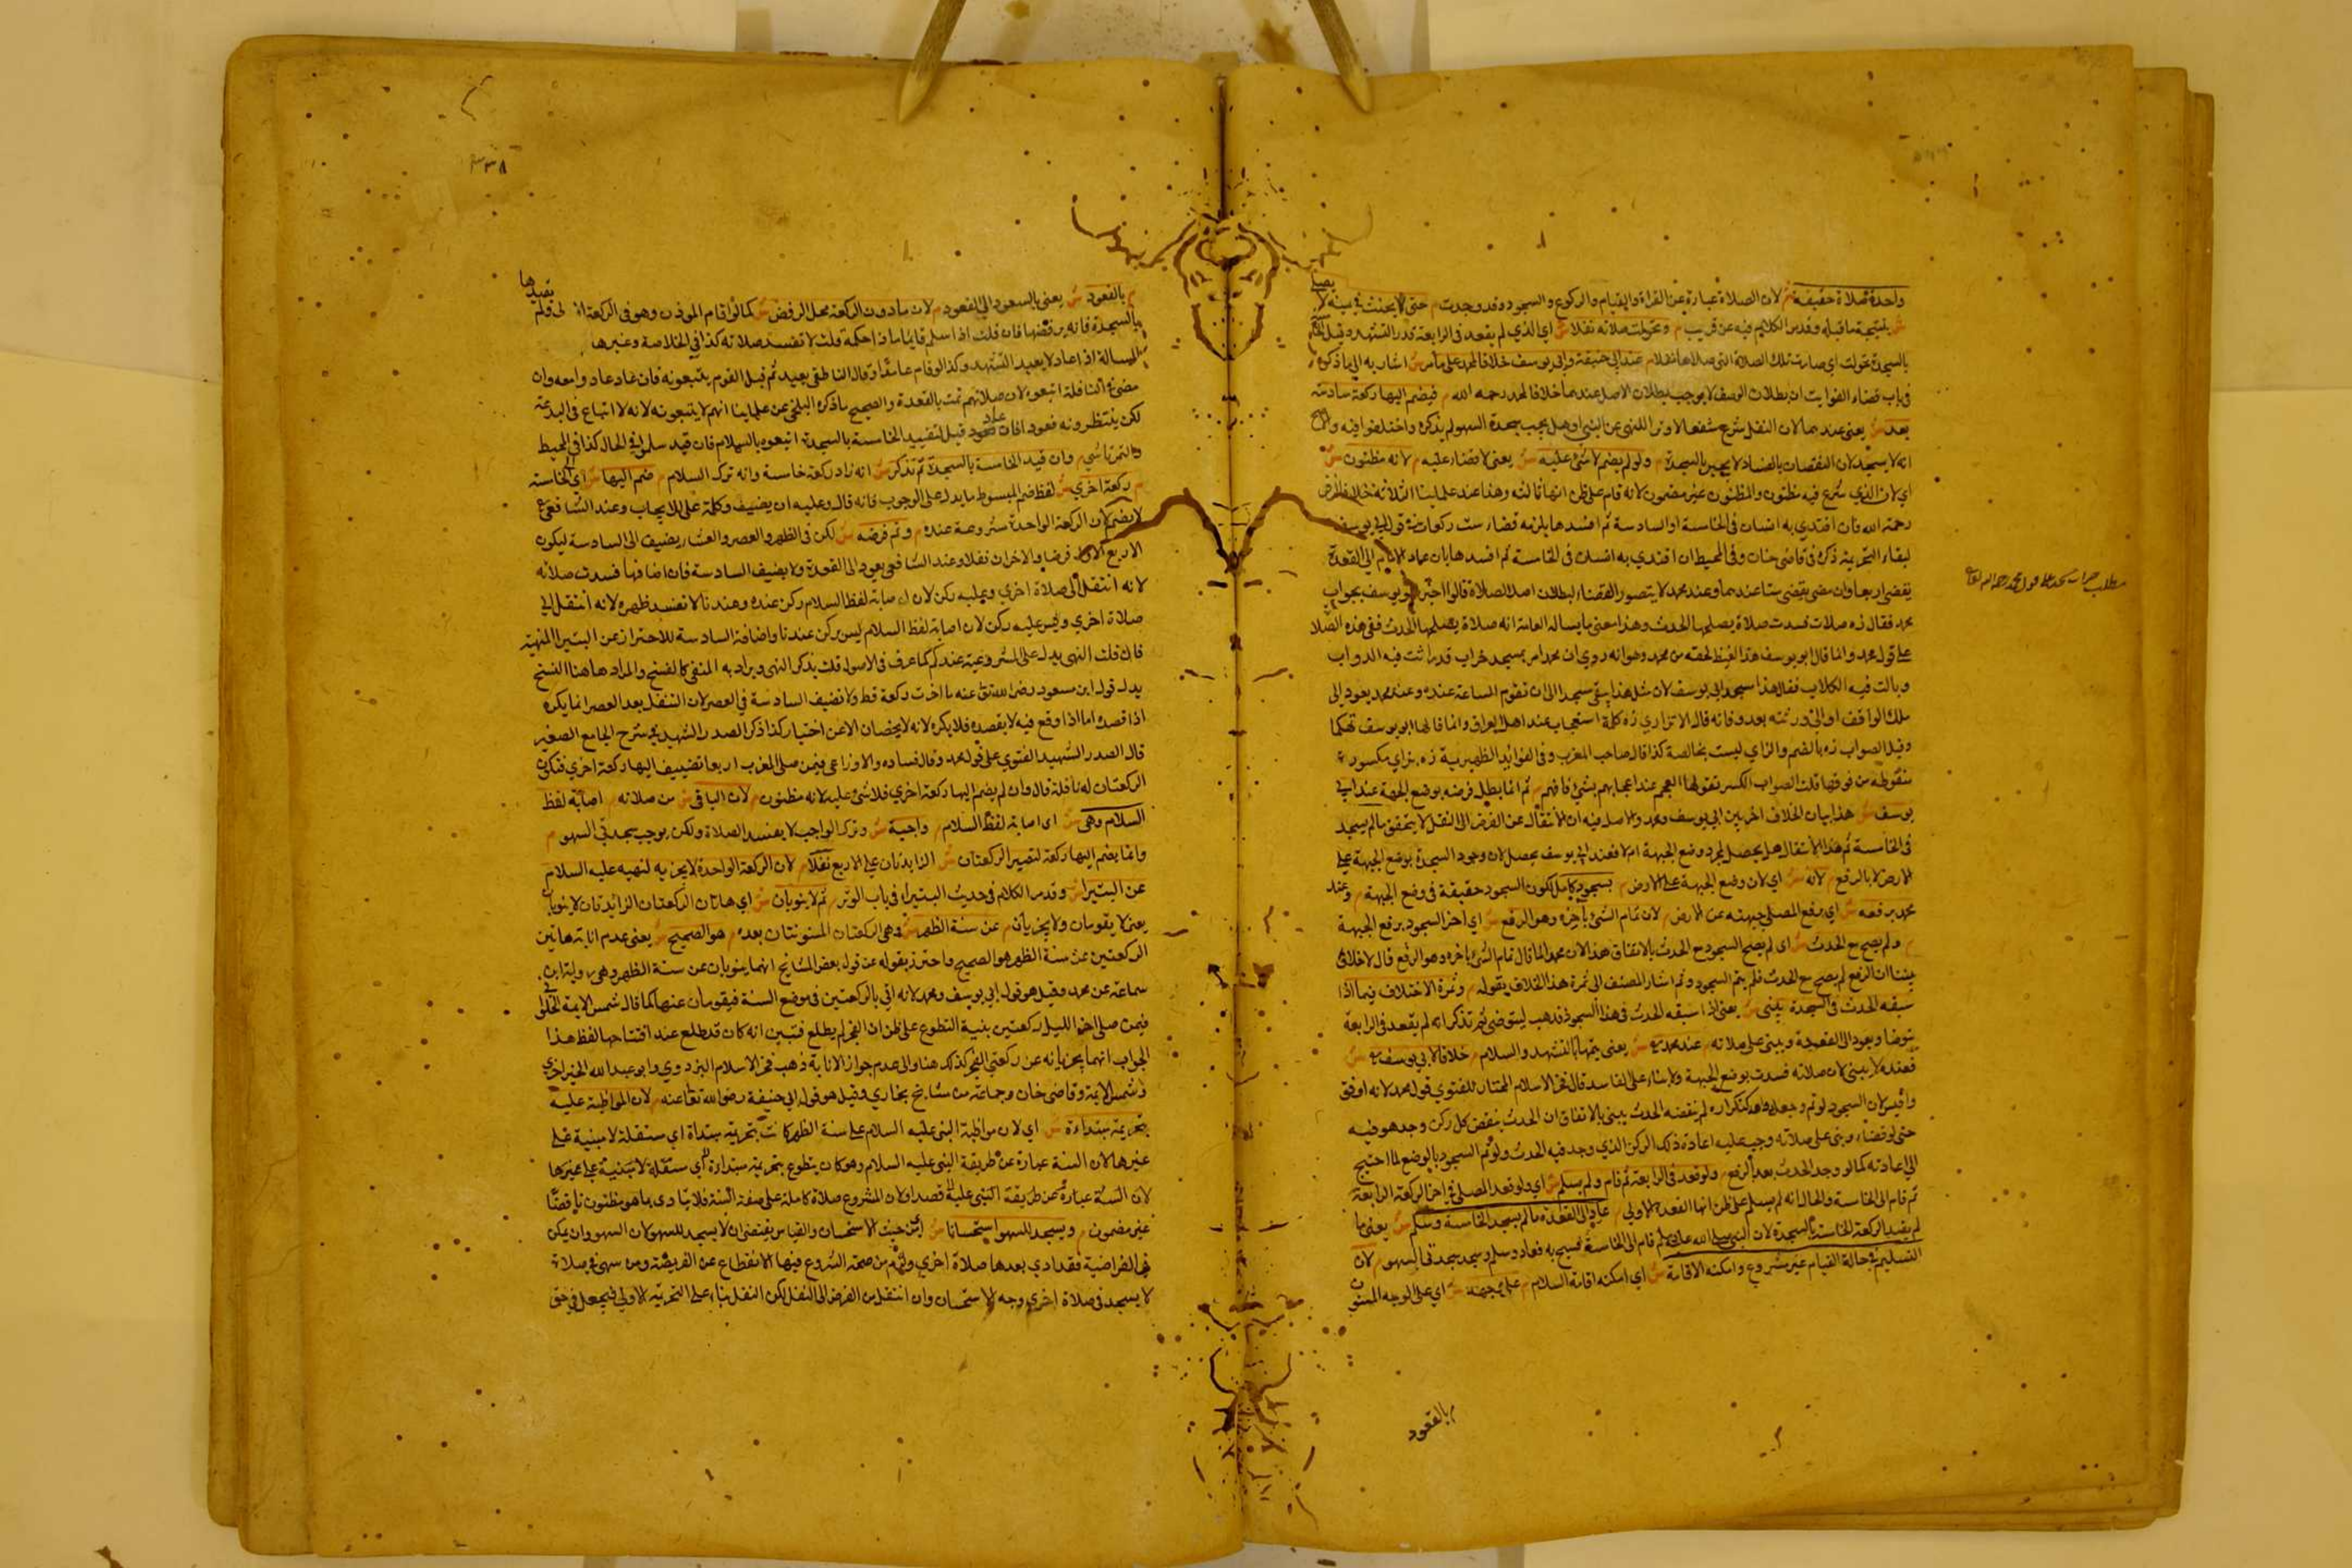 واحدة صلاة حقيقة م لان الصلاة عبارة عن القراة والقيام والركوع والسجود وقد وجدت م حتى لا يحنث في يمينه لا يصلي
ش نتيجة ما قبله وقد مر الكلام فيه عن قريب م وتحولت صلاته نفلا ش اي الذي لم يقعد في الرابعة قدر التشهد وقيد
بالسجدة تحولت اي صارت تلك الصلاة التي صلاها نفلا م عند ابي حنيفة وابي يوسف خلافا لمحمد على ما مر ش اشار به الى ما ذكره
في باب قضاء الفوايت ان بطلان الوصف لا يوجب بطلان الاصل عندهما خلافا لمحمد رحمه الله م فيضم اليها ركعة سادسة
بعد ش يعني عندهما لان النفل شرع شفعا لا وترا للنهي عن البتيرا وهل يجب سجدة السهو لم يذكره واختلفوا فيه والاصح
انه لا يسجد لان النقصان بالفساد لا يجبر بالسجدة م ولو لم يضم لا شيء عليه ش يعني لا قضاء عليه م لانه مظنون ش
اي لان الذي شرع فيه مظنون والمظنون غير مضمون لانه قام على ظن انها ثالثة وهذا عند علماينا الثلاثة خلافا لزفر
رحمه الله فان اقتدى به انسان في الخامسة او السادسة ثم افسدها يلزمه قضاء ست ركعات في قول ابي يوسف
لبقاء التحريمة ذكره في قاضي خان وفي المحيط ان اقتدى به انسان في الخامسة ثم افسدها بان عاد الامام الى القعدة
يقضي اربعا وان مضى يقضي ستا عندهما وعند محمد لا يتصور القضاء لبطلان اصل الصلاة قالوا اخبر ابو يوسف بجواب
محمد فقال زه صلات فسدت صلاة يصلحها الحدث وهذا معنى ما يساله العامة انه صلاة يصلحها الحدث ففي هذه الصلا
على قول محمد وانما قال ابو يوسف هذا الغيظ لحقه من محمد وهو انه روي ان محمدا مر بمسجد خراب قد راثت فيه الدواب
وبالت فيه الكلاب فقال هذا مسجد ابي يوسف لان مثل هذا يبقى مسجدا الى ان تقوم الساعة عنده وعند محمد يعود الى
ملك الواقف او الى ورثته بعد وفاته قال الاترازي زه كلمة استعجاب عند اهل العراق وانما قالها ابو يوسف تهكما
وقيل الصواب زه بالضم والزاي ليست بخالصة كذا قال صاحب المغرب وفي الفوايد الظهيرية زه بزاي مكسورة
منقوطة من فوقها قلت الصواب الكسر تقولها العجم عند اعجابهم بشيء فافهم م ثم انما يبطل فرضه بوضع الجبهة عند ابي
يوسف ش هذا بيان الخلاف اخر بين ابي يوسف ومحمد والاصل فيه ان الانتقال عن الفرض الى النفل لا يتحقق ما لم يسجد
في الخامسة ثم هذا الانتقال هل يحصل بمجرد وضع الجبهة ام لا فعند ابي يوسف يحصل لان وجود السجدة بوضع الجبهة على
الارض لا بالرفع م لانه ش اي لان وضع الجبهة على الارض م سجود كامل لكون السجود حقيقة في وضع الجبهة م وعند
محمد برفعه ش اي برفع المصلي جبهته عن الارض م لان تمام الشيء باخره وهو الرفع ش اي اخر السجود برفع الجبهة
م ولم يصح مع الحدث ش اي لم يصح السجود مع الحدث بالاتفاق هذا لان محمدا لما قال تمام الشيء باخره وهو الرفع قال لا خلاف
بيننا ان الرفع لم يصح مع الحدث فلم يتم السجود وثم اشار المصنف الى ثمرة هذا الخلاف بقوله م وثمرة الاختلاف فيما اذا
سبقه الحدث في السجدة بنى ش يعني اذا سبقه الحدث في هذا السجود فذهب ليتوضى ثم تذكر انه لم يقعد في الرابعة
توضا ويعود الى القعدة ويبني على صلاته م عند محمد ش يعني يتمها بالتشهد والسلام م خلافا لابي يوسف ش
فعنده لا يبني لان صلاته فسدت بوضع الجبهة ولا بناء على الفاسد قال فخر الاسلام المختار للفتوى قول محمد لانه اوفق
واقيس لان السجود لو تم وجعل واحد كتكراره لم ينقضه الحدث يبنى بالاتفاق ان الحدث ينقض كل ركن وجد هو فيه
حتى لو قضاء وبنى على صلاته وجب عليه اعادة ذلك الركن الذي وجد فيه الحدث ولو تم السجود بالوضع لما احتيج
الى اعادته كما لو وجد الحدث بعد الرفع م ولو قعد في الرابعة ثم قام ولم يسلم ش اي ولو قعد المصلي في اخر الركعة الرابعة
ثم قام الى الخامسة والحال انه لم يسلم على ظن انها القعدة الاولى م عاد الى القعدة ما لم يسجد للخامسة وسلم ش يعني ما
لم يقيد الركعة الخامسة بالسجدة لان النبي صلى الله عليه وسلم قام الى الخامسة فسبح به فعاد وسلم وسجد سجدتي السهو م لان
التسليم في حالة القيام غير مشروع وامكنه الاقامة ش اي امكنه اقامة السلام م على وجهه ش اي على الوجه المسنون
م بالقعود
٣٣٨
م بالقعود ش يعني بالعود الى القعود م لان ما دون الركعة محل الرفض ش كما لو اقام الموذن وهو في الركعة الاولى ولم يقيدها
بالسجدة فانه يرفضها فان قلت اذا سلم قايما ما ذا حكمه قلت لا تفسد صلاته كذا في الخلاصة وغيرها
المسالة اذا عاد لا يعيد التشهد وكذا لو قام عامدا وقال الناطفي يعيد ثم قيل القوم يتبعونه فان عاد عادوا معه وان
مضى في النافلة اتبعوه لان صلاتهم تمت بالقعدة والصحيح ما ذكره البلخي عن علماينا انهم لا يتبعونه لانه لا اتباع في البدعة
لكن ينتظرونه قعودا فان عاد قبل تقييد الخامسة بالسجدة اتبعوه بالسلام فان قيد سلموا في الحال كذا في المحيط
والتمرتاشي م وان قيد الخامسة بالسجدة ثم تذكر ش انه زاد ركعة خامسة وانه ترك السلام م ضم اليها ش اي الى الخامسة
م ركعة اخرى ش لفظ ضم المبسوط ما يدل على الوجوب فانه قال وعليه ان يضيف وكلمة على للايجاب وعند الشافعي
لا يضم لان الركعة الواحدة مشروعة عنده م وتم فرضه ش لكن في الظهر والعصر والعشاء يضيف الى السادسة ليكون
الاربع الاول فرضا والاخران نفلا وعند الشافعي يعود الى القعدة ولا يضيف السادسة فان اضافها فسدت صلاته
لانه انتقل الى صلاة اخرى وعليه ركن لان اصابة لفظ السلام ركن عنده وعندنا لا تفسد ظهره لانه انتقل الى
صلاة اخرى وليس عليه ركن لان اصابة لفظ السلام ليس بركن عندنا واضافة السادسة للاحتراز عن البتيرا المنهية
فان قلت النهي يدل على المشروعية عندكم كما عرف في الاصول قلت يذكر النهي ويراد به المنفي كالفسخ والمراد هاهنا النسخ
يدل قول ابن مسعود رضي الله تعالى عنه ما اخرت ركعة قط ولا تضيف السادسة في العصر لان التنفل بعد العصر انما يكره
اذا قصد اما اذا وقع فيه لا بقصده فلا يكره لانه لا يخصان الا عن اختيار كذا ذكر الصدر الشهيد في شرح الجامع الصغير
قال الصدر الشهيد الفتوى على قول محمد وقال قتادة والاوزاعي فيمن صلى المغرب اربعا تضيف اليها ركعة اخرى فتكون
الركعتان له نافلة قال وان لم يضم اليها ركعة اخرى فلا شيء عليه لانه مظنون م لان الباقي ش من صلاته م اصابة لفظ
السلام وهي ش اي اصابة لفظ السلام م واجبة ش وترك الواجب لا يفسد الصلاة ولكن يوجب سجدتي السهو م
وانما يضم اليها ركعة لتصير الركعتان ش الزايدتان على الاربع نفلا م لان الركعة الواحدة لا يجزيه لنهيه عليه السلام
عن البتيرا ش وقد مر الكلام في حديث البتيراء في باب الوتر م ثم لا ينوبان ش اي هاتان الركعتان الزائدتان لا ينوبان
يعني لا يقومان ولا يجزيان م عن سنة الظهر ش وهي الركعتان المسنونتان بعده م هو الصحيح ش يعني عدم انابة هاتين
الركعتين عن سنة الظهر هو الصحيح واحترز بقوله عن قول بعض المشايخ انهما ينوبان عن سنة الظهر وهي رواية ابن
سماعة عن محمد وقيل هو قول ابي يوسف ومحمد لانه اتى بالركعتين في موضع السنة فيقومان عنها كما قال شمس الايمة الحلواني
فيمن صلى اخر الليل ركعتين بنية التطوع على ظن ان الفجر لم يطلع فتبين انه كان قد طلع عند افتتاحها لفظ هذا
الجواب انهما يجزيانه عن ركعتي الفجر كذلك هنا والى عدم جواز الانابة ذهب فخر الاسلام البزدوي وابو عبد الله الخيزاخزي
وشمس الايمة وقاضي خان وجماعة من مشايخ بخاري وقيل هو قول ابي حنيفة رضي الله تعالى عنه م لان المواظبة عليه
بتحريمة مبتداة ش اي لان مواظبة النبي عليه السلام على سنة الظهر كانت بتحريمة مبتداة اي مستقلة لا مبنية على
غيرها لان السنة عبارة عن طريقة النبي عليه السلام وهو كان يتطوع بتحريمة مبتداة اي مستقلة لا مبنية على غيرها
لان السنة عبارة عن طريقة النبي عليه قصدا ولان المشروع صلاة كاملة على صفة السنة فلا يتادى بما هو مظنون ناقصا
غير مضمون م ويسجد للسهو استحسانا ش اي من حيث الاستحسان والقياس يقتضي ان لا يسجد للسهو لان السهو وان يكن
في الفراضية فقد ادى بعدها صلاة اخرى من صحة الشروع فيها الانقطاع عن الفريضة ومن سهى في صلاة
لا يسجد في صلاة اخرى وجه الاستحسان وان انتقل من الفرض الى النفل لكن النفل بناء على التحريمة الاولى فيجعل في حق